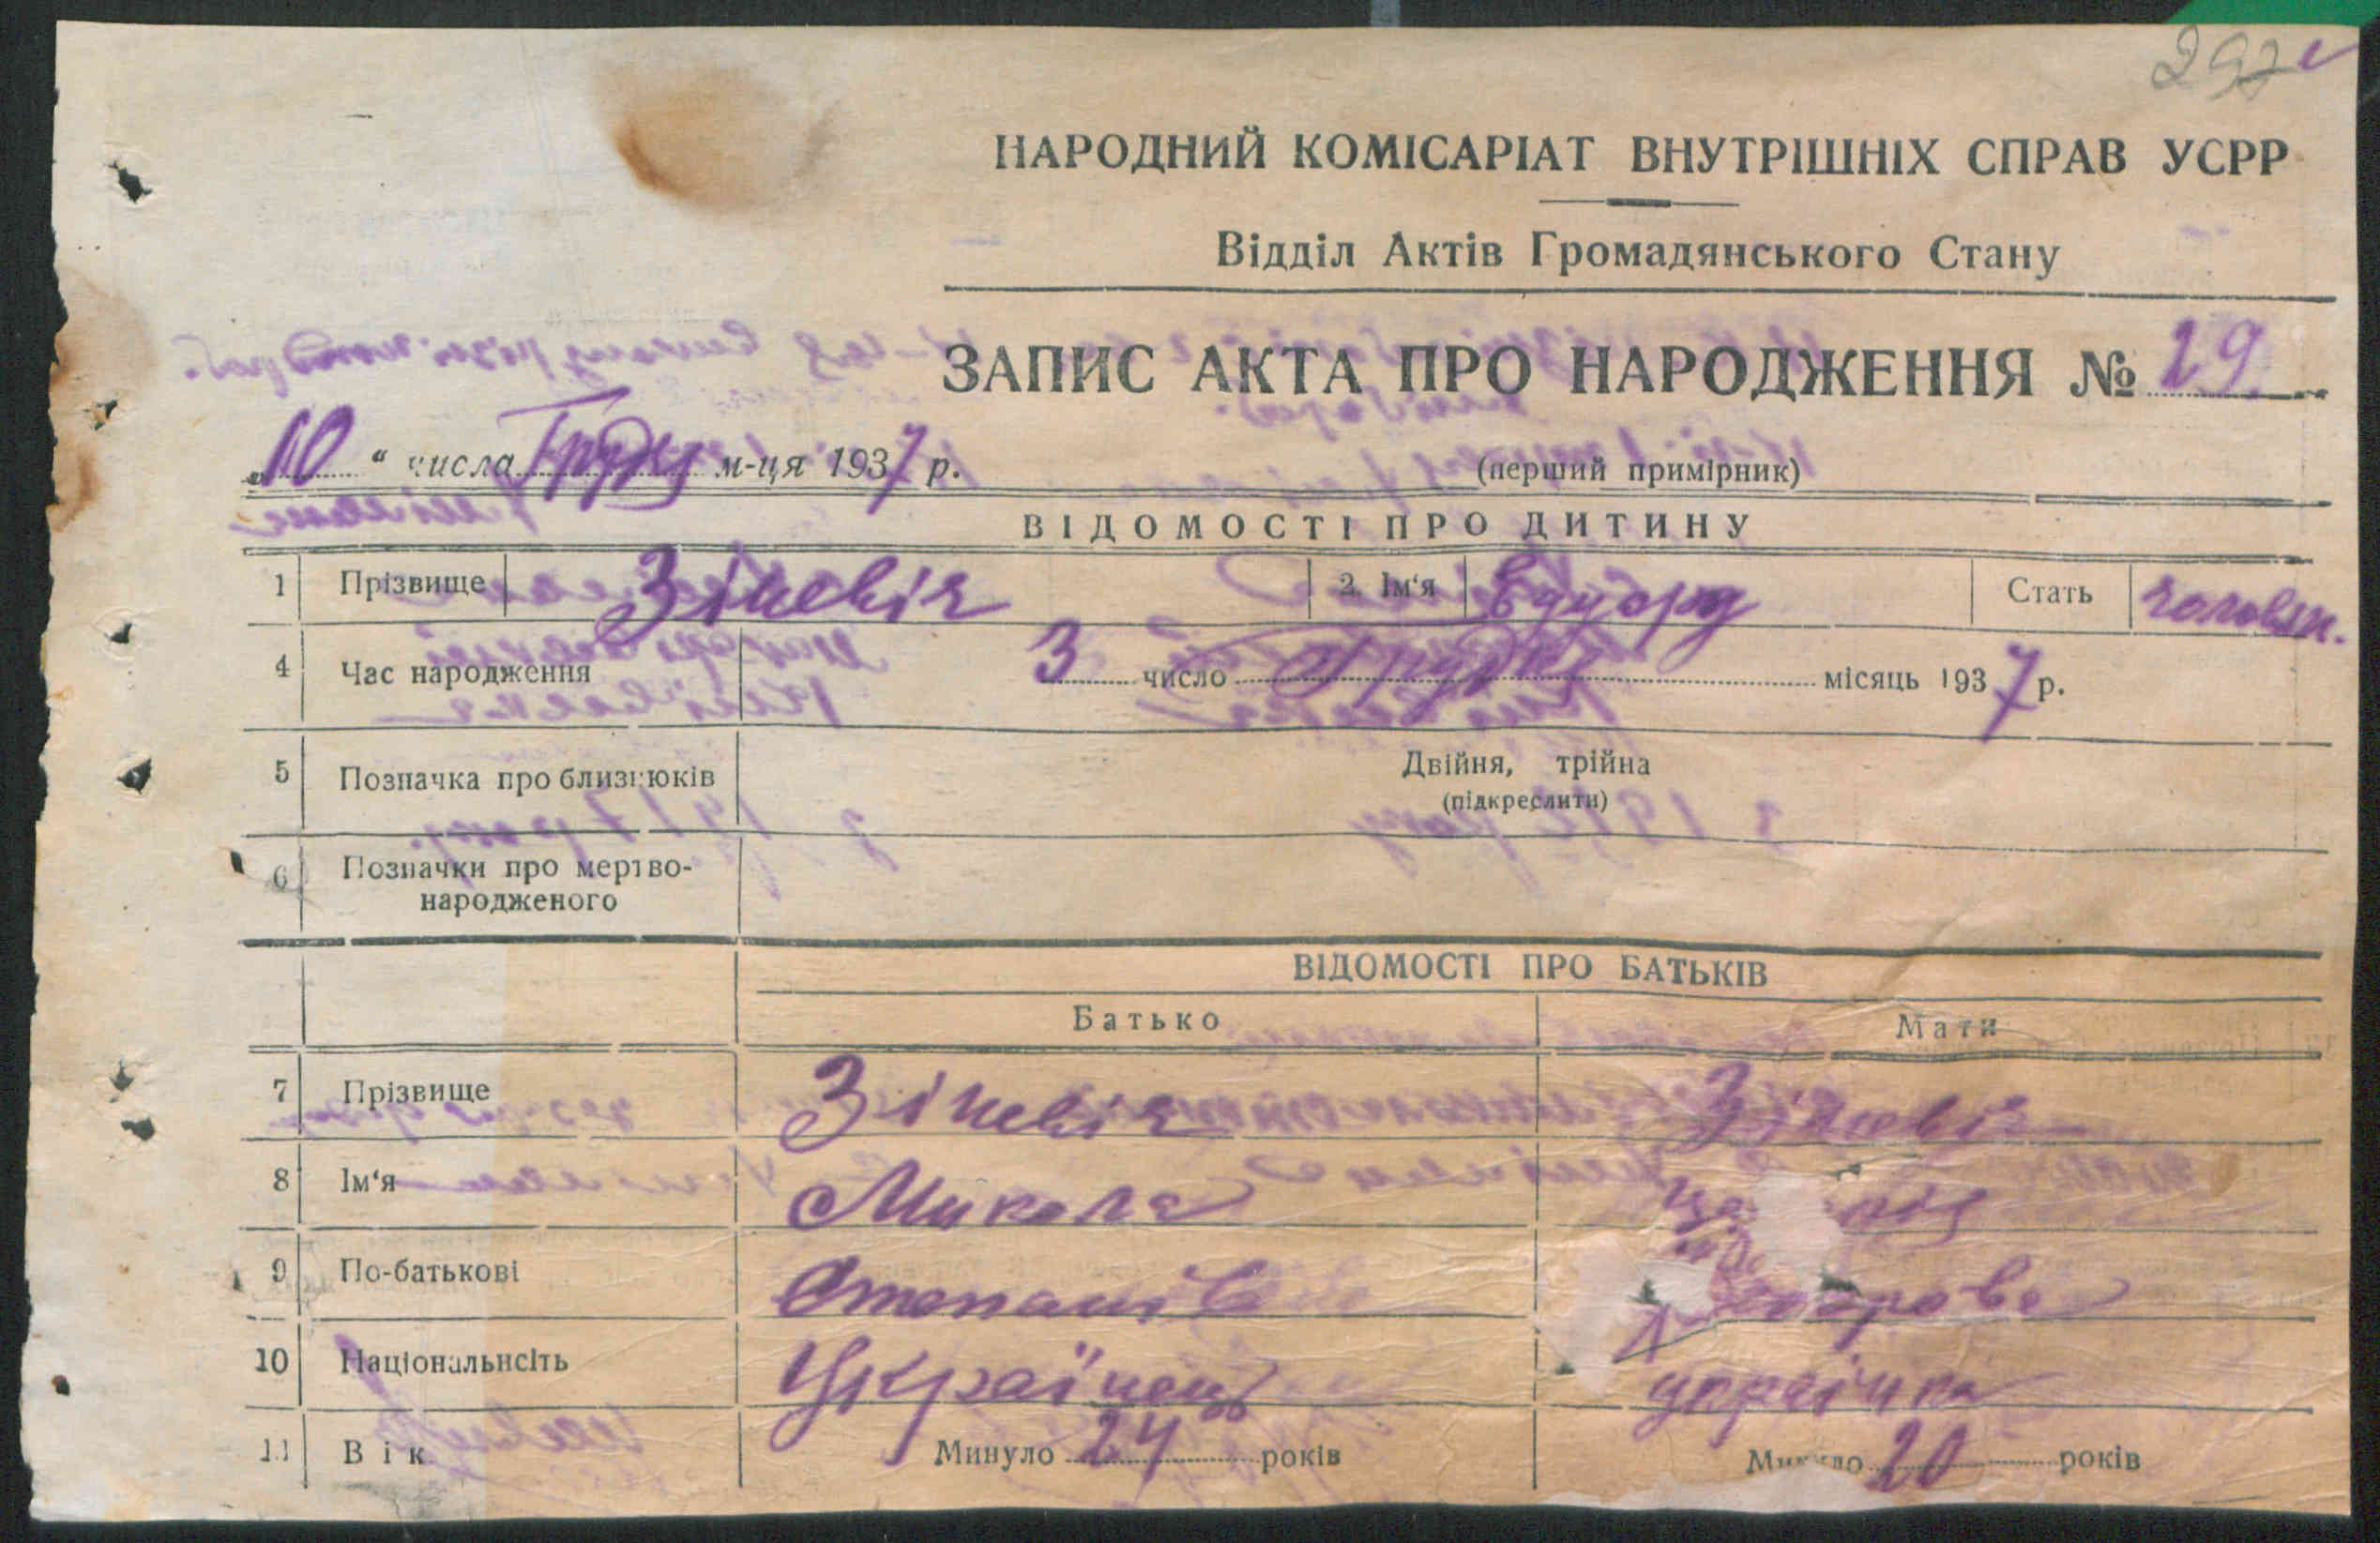 297
НАРОДНИЙ КОМІСАРІАТ ВНУТРІШНІХ СПРАВ УСРР
Відділ Актів Громадянського Стану
ЗАПИС АКТА ПРО НАРОДЖЕННЯ № 29
„10“ числа Грудн м-ця 1937 р. (перший примірник)
ВІДОМОСТІ ПРО ДИТИНУ
1 Прізвище Зіневіч 2. Ім‘я Едуард Стать чоловіч.
4 Час народження 3 число Грудня місяць 1937 р.
5 Позначка про близнюків Двійня, трійна
(підкреслити)
6 Позначки про мертво-
народженого
ВІДОМОСТІ ПРО БАТЬКІВ
Батько Мати
7 Прізвище Зіневіч Зіневіч
8 Ім‘я Микола
9 По-батькові Степанів
10 Національнсіть Українець українка
11 Вік Минуло 24 років Минуло 20 років